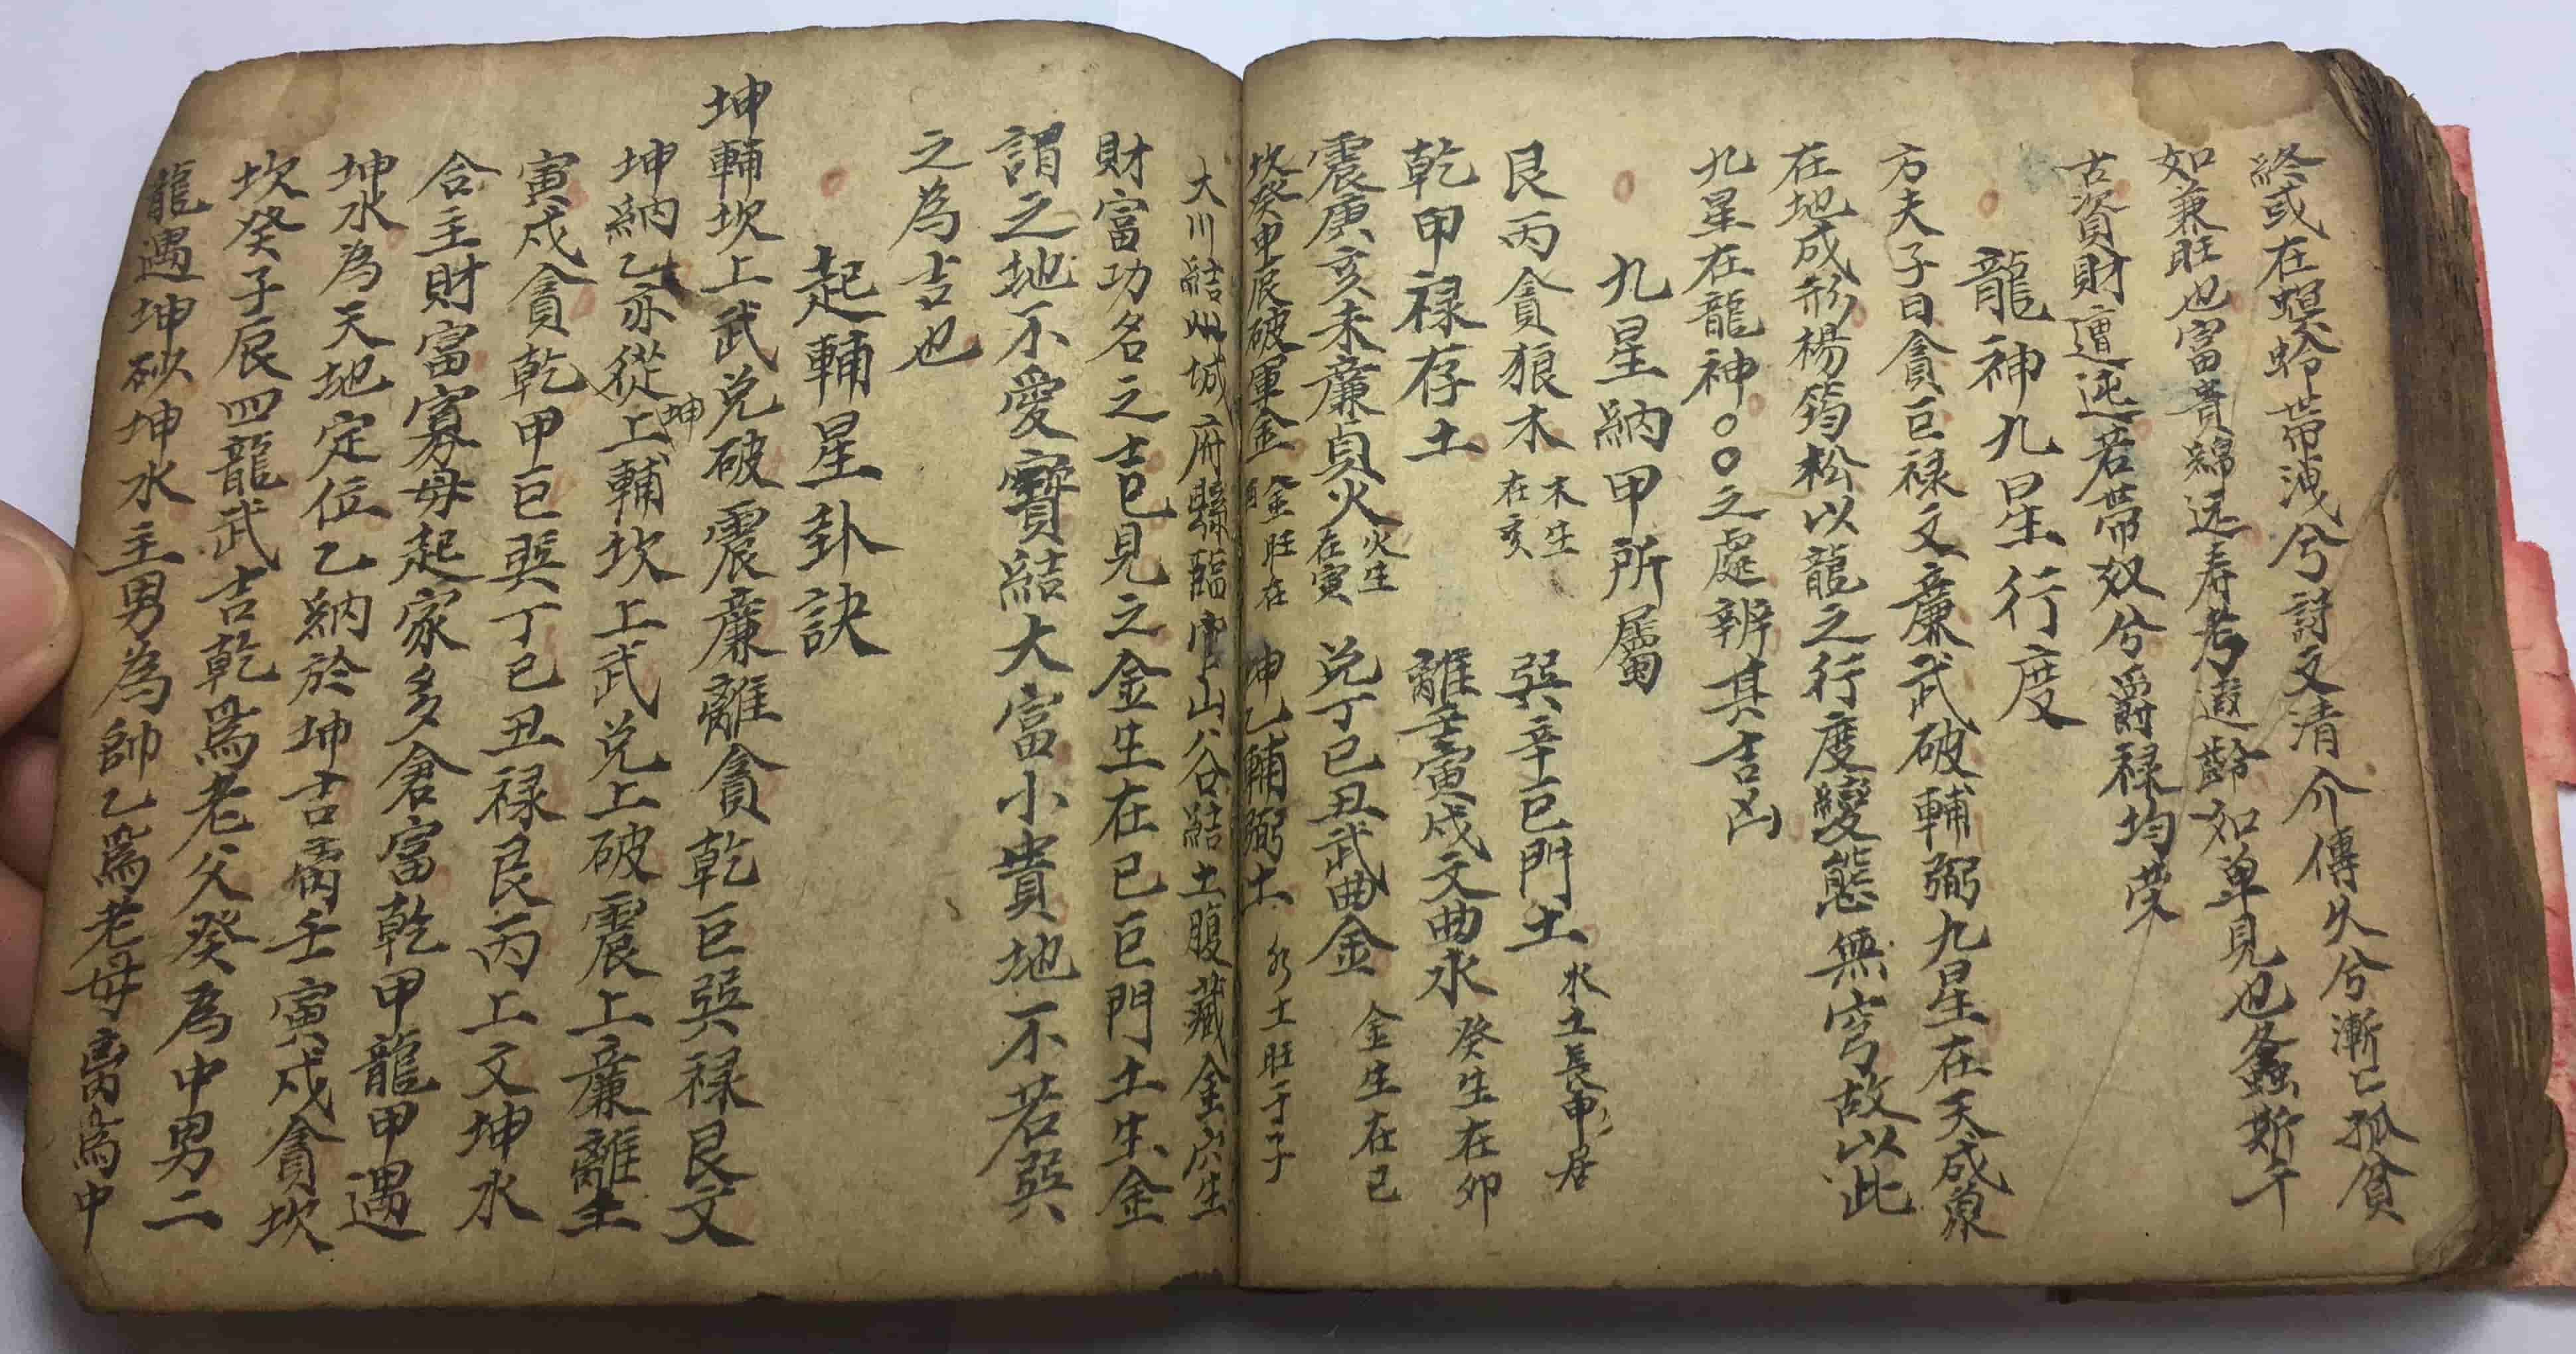 終或在螟蛉帶洩兮詩文清介傳久兮漸亡孤貧
如兼旺也富貴綿远寿考遐齡如單見也螽斯千
古資財遭迍若帶奴兮爵禄均荣
龍神九星行度
方夫子曰貪巨禄文廉武破輔弼九星在天成象
在地成形楊筠松以龍之行度變態無穷故以此
九星在龍神〇〇之處辨其吉凶
九星納甲所屬
艮丙貪狼木 木生在亥 巽辛巨門土 水土長申居
乾甲禄存土 離壬寅戌文曲水 癸生在卯
震庚亥未廉貞火 火生在寅 兑丁巳丑武曲金 金生在巳
坎癸申辰破軍金 金旺在酉 坤乙輔弼土 水土旺于子
大川結州城府縣臨官山谷結土腹藏金穴生
財富功名之士巳見之金生在巳巨門土生金
謂之地不愛寶結大富小貴地不若巽
之為吉也
起輔星卦訣
坤輔坎上武兑破震廉離貪乾巨巽禄艮文
坤納乙亦從坤上輔坎上武兑上破震上廉離壬
寅戌貪乾甲巨巽丁巳丑禄艮丙上文坤水
合主財富寡母起家多倉富乾甲龍甲遇
坤水為天地定位乙納於坤吉离壬寅戌貪坎
坎癸子辰四龍武吉乾為老父癸為中男二
龍遇坤砂坤水主男為帥乙為老母离為中